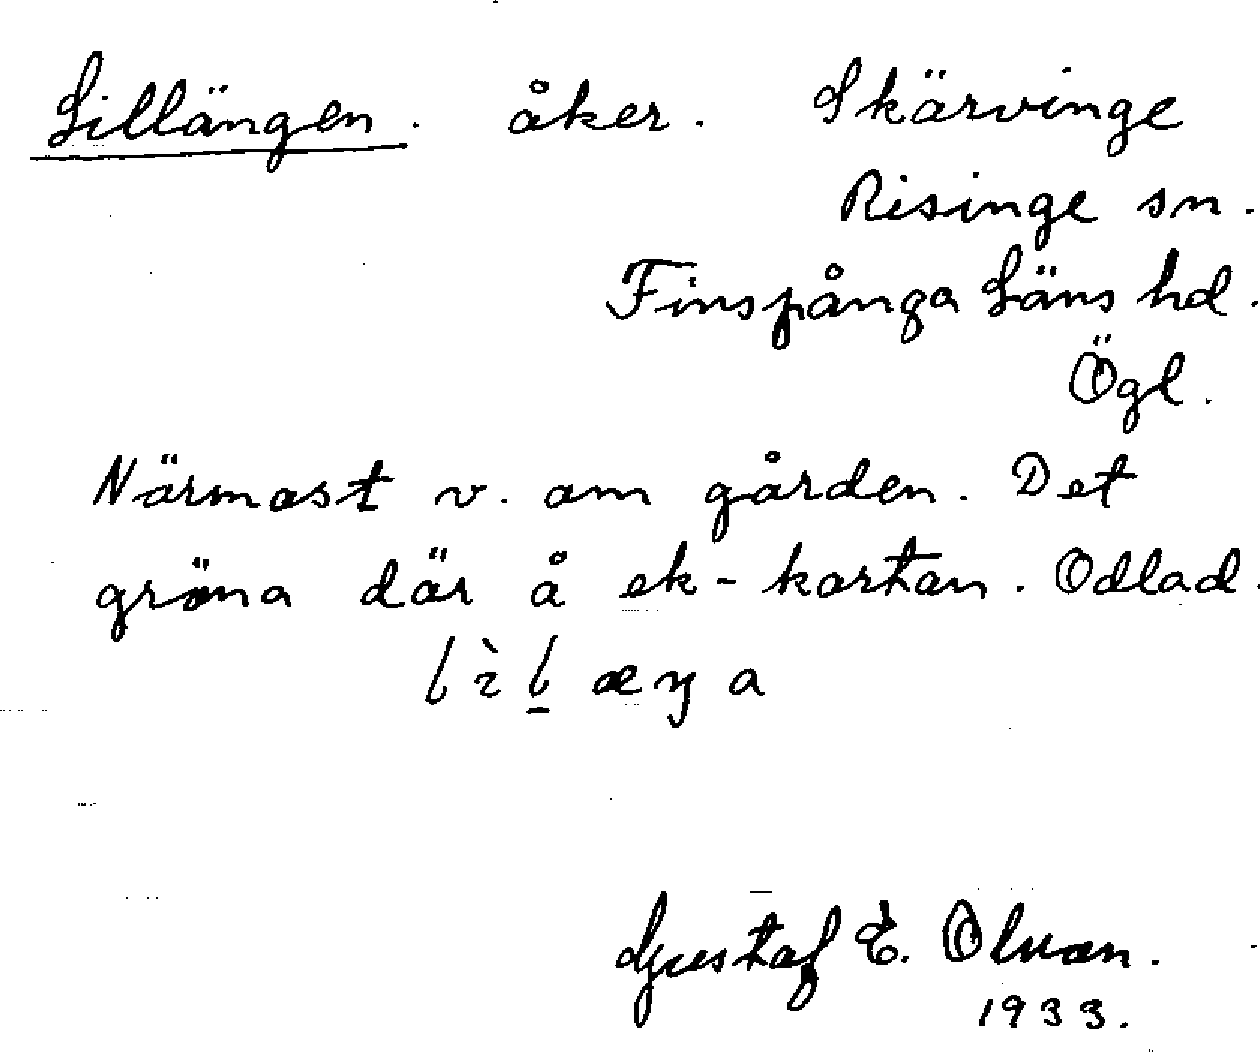 Lillängen. åker. Skärvinge
Risinge sn.
Finspånga Läns hd.
Ögl.
Närmast v. om gården. Det
gröna där å ek-kartan. Odlad.
Gustaf E. Olson.
1933.